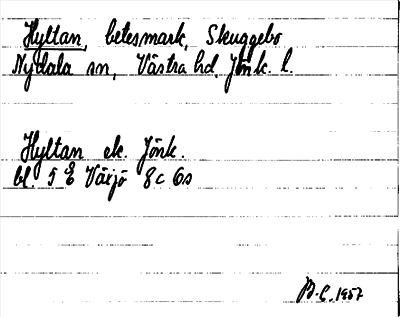 Hyltan, betesmark, Skuggebo
Nydala sn, Västra hd, Jönk. l.
Hyltan ek. Jönk.
bl. 5 E Växjö 8c 6s
B-L. 1957